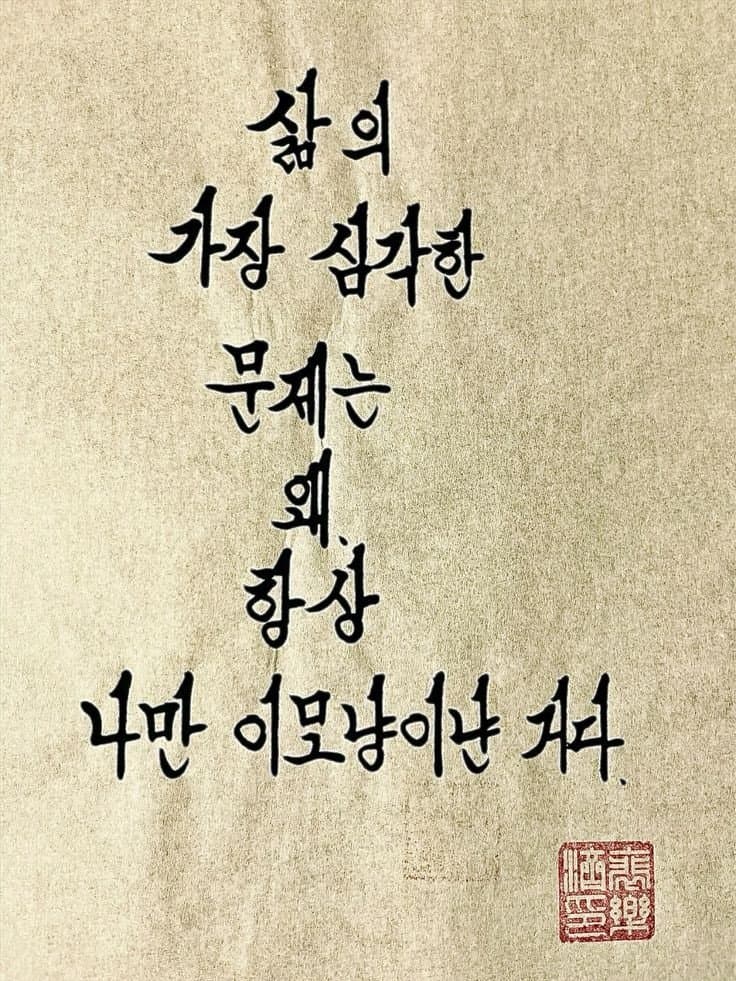 삶의
가장 심각한
문제는
왜,
항상
나만 이모냥이냔 거다.